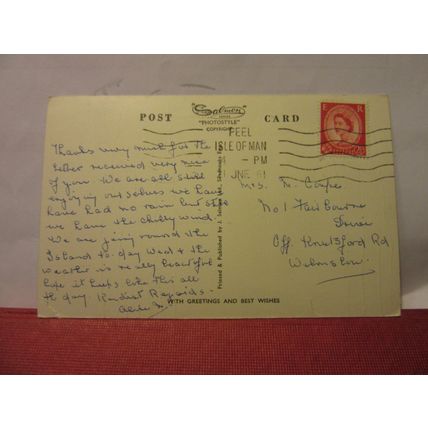 Salmon
SERIES
"PHOTOSTYLE"
COPYRIGHT
POST CARD
E R
PEEL
ISLE OF MAN
- PM
JNE 61
Thanks very much for the
letter received very nice
of you. We are all still
enjoying ourselves we have
have had no rain but still
we have the chilly wind
We are going round the
Island to-day Wed & the
weather is really beautiful
hope it keeps like this all
the day. Kindest Regards.
Printed & Published by J. Salmon Ltd., Sevenoaks
Mrs M. Cooper
No 1 Fairbourne
Drive
Off Knutsford Rd
Wilmslow.
WITH GREETINGS AND BEST WISHES